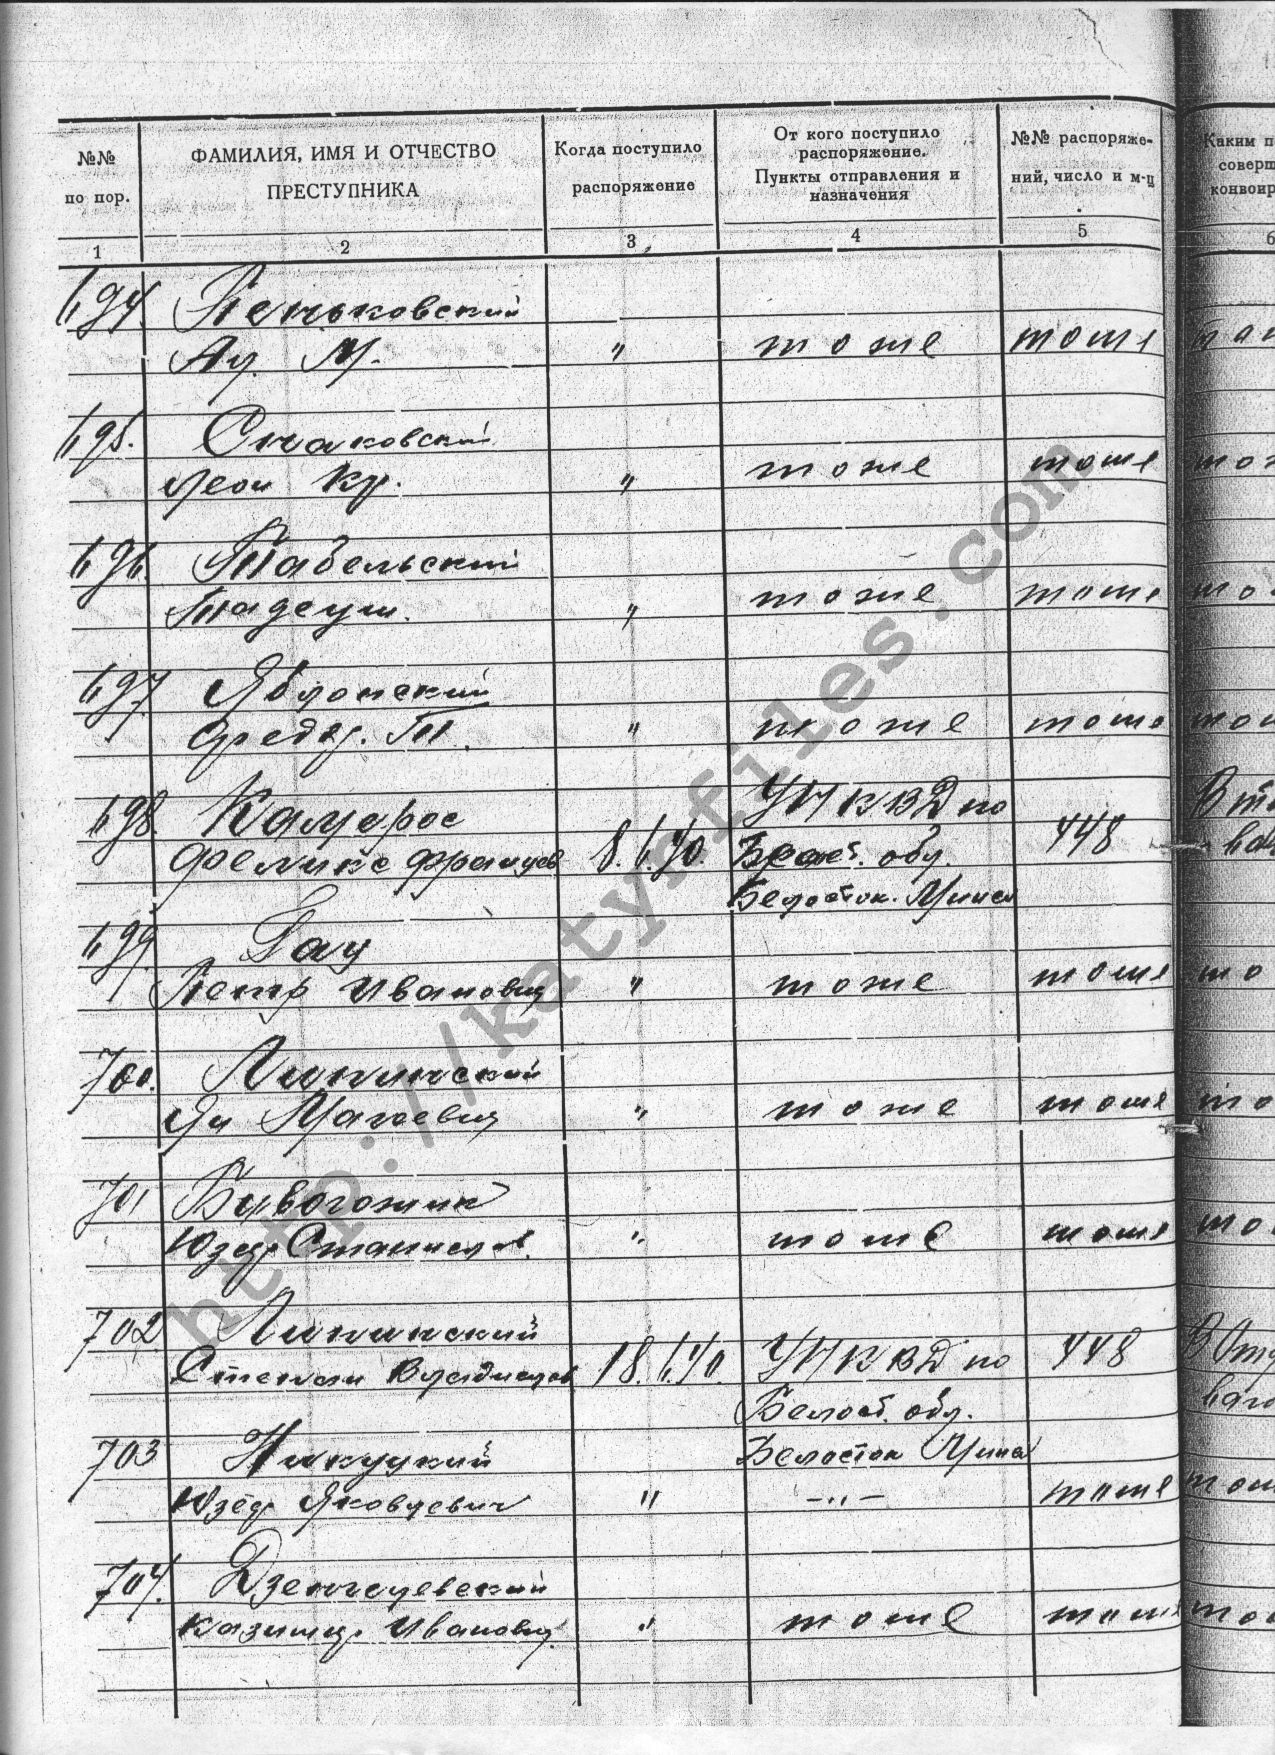 №№ по пор.
ФАМИЛИЯ, ИМЯ И ОТЧЕСТВО ПРЕСТУПНИКА
Когда поступило распоряжение
От кого поступило распоряжение. Пункты отправления и назначения
№№ распоряже-ний, число и м-ц
Каким п
соверш
конвоир
1 2 3 4 5 6
694. Пеньковский
Ал. М. " тоже тоже
695. Снаковский
Леон Кр. " тоже тоже
696. Табельский
Тадеуш. " тоже тоже
697 Яблонский
Фредер. Т. " тоже тоже
698. УНКВД по
Феликс Францев 8.6.40. Белост. обл. 448
Белосток. Минск
699. Гац
Петр Иванович " тоже тоже
700. Липинский
Ян " тоже тоже
701
Юзеф Станислав. " тоже тоже
702 Липинский
Степан Владислав 18.6.40. УНКВД по 448
Белост. обл.
703 Никуцкий Белосток Минск
Юзеф Яковлевич " –"– тоже
704. Дзенгелевский
Казимир. Иванович " тоже тоже
http://katynfiles.com